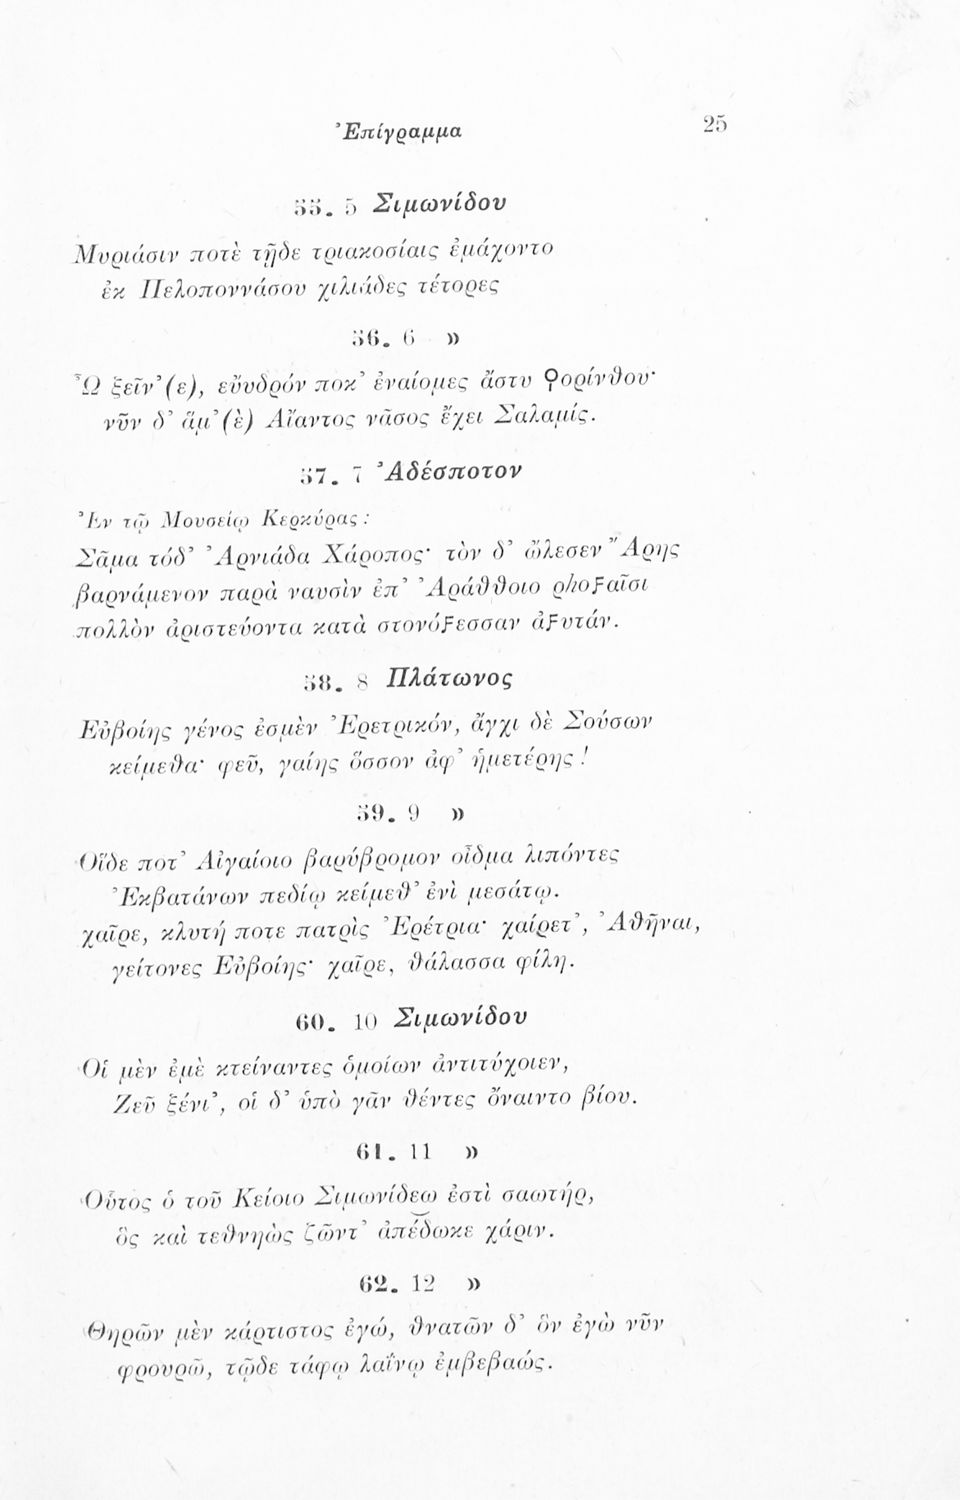 Ἐπίγραμμα
25
55. 5 Σιμωνίδου
Μυριάσιν ποτὲ τῇδε τριακοσίαις ἐμάχοντο
ἐκ Πελοποννάσου χιλιάδες τέτορες
56. 6 »
Ὦ ξεῖν’(ε), εὔυδρόν ποκ’ ἐναίομες ἄστυ Ϙορίνθου·
νῦν δ’ ἅμ’(ὲ) Αἴαντος νᾶσος ἔχει Σαλαμίς.
57. 7 Ἀδέσποτον
Ἐν τῷ Μουσείῳ Κερκύρας:
Σᾶμα τόδ’ Ἀρνιάδα Χάροπος· τὸν δ’ ὤλεσεν Ἄρης
βαρνάμενον παρὰ ναυσὶν ἐπ’ Ἀράθθοιο ρhοϜαῖσι
πολλὸν ἀριστεύοντα κατὰ στονόϜεσσαν ἀϜυτάν.
58. 8 Πλάτωνος
Εὐβοίης γένος ἐσμὲν Ἐρετρικόν, ἄγχι δὲ Σούσων
κείμεθα· φεῦ, γαίης ὅσσον ἀφ’ ἡμετέρης!
59. 9 »
Οἵδε ποτ’ Αἰγαίοιο βαρύβρομον οἶδμα λιπόντες
Ἐκβατάνων πεδίῳ κείμεθ’ ἐνὶ μεσάτῳ.
χαῖρε, κλυτή ποτε πατρὶς Ἐρέτρια· χαίρετ’, Ἀθῆναι,
γείτονες Εὐβοίης· χαῖρε, θάλασσα φίλη.
60. 10 Σιμωνίδου
Οἱ μὲν ἐμὲ κτείναντες ὁμοίων ἀντιτύχοιεν,
Ζεῦ ξένι’, οἱ δ’ ὑπὸ γᾶν θέντες ὄναιντο βίου.
61. 11 »
Οὗτος ὁ τοῦ Κείοιο Σιμωνίδεω ἐστὶ σαωτήρ,
ὃς καὶ τεθνηὼς ζῶντ’ ἀπέδωκε χάριν.
62. 12 »
Θηρῶν μὲν κάρτιστος ἐγώ, θνατῶν δ’ ὃν ἐγὼ νῦν
φρουρῶ, τῷδε τάφῳ λαΐνῳ ἐμβεβαώς.